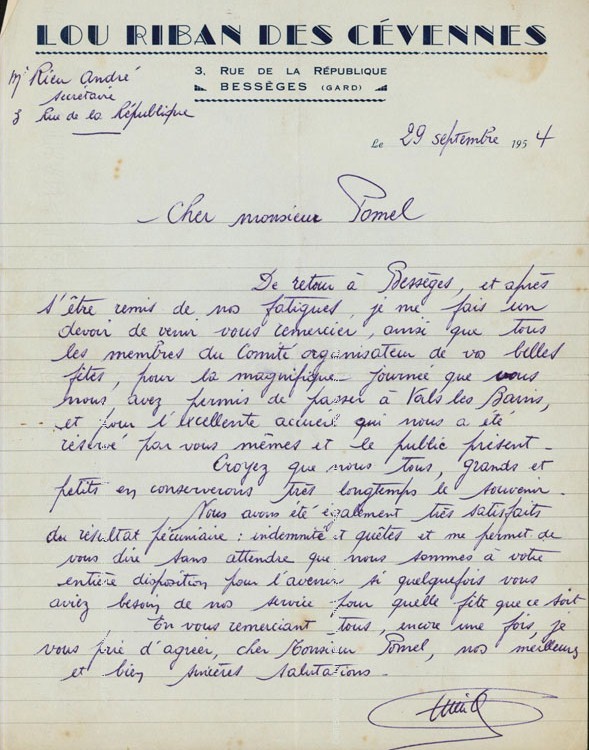 LOU RIBAN DES CÉVENNES
3, RUE DE LA RÉPUBLIQUE
BESSÈGES (GARD)
Mr Rieu André
secrétaire
3 Rue de la République
Le 29 septembre 1954
Cher monsieur Pomel
De retour à Bessèges, et après
s'être remis de nos fatigues, je me fais un
devoir de venir vous remercier, ainsi que tous
les membres du Comité organisateur de vos belles
fêtes, pour la magnifique journée que vous
nous avez permis de passer à Vals les Bains,
et pour l'excellente accueil qui nous a été
réservé par vous mêmes et le public présent _
Croyez que nous tous, grands et
petits en conserverons très longtemps le souvenir _
Nous avons été également très satisfaits
du résultat pécuniaire : indemnité et quêtes et me permet de
vous dire sans attendre que nous sommes à votre
entière disposition pour l'avenir si quelquefois vous
aviez besoin de nos service pour quelle fête que ce soit
En vous remerciant tous, encore une fois, je
vous prie d'agréer, cher Monsieur Pomel, nos meilleurs
et bien sincères salutations _